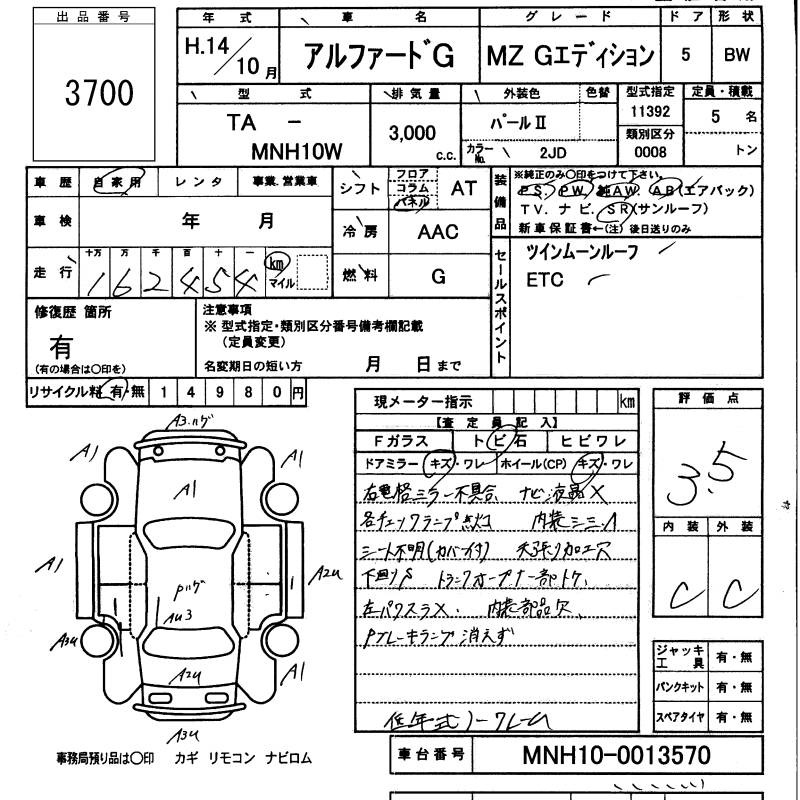 出品番号
3700
年式
H.14/10月
車名
アルファードG
グレード
MZ Gエディション
ドア
5
形状
BW
型式
TA -
MNH10W
排気量
3,000
c.c.
外装色
パールⅡ
色替
カラーNo.
2JD
型式指定
11392
類別区分
0008
定員・積載
5 名
トン
車歴 自家用 レンタ 事業.営業車
車検 年 月
走行 十万 万 千 百 十 一
162454 km マイル
シフト フロア コラム パネル AT
冷房 AAC
燃料 G
装備品
※純正のみ○印をつけて下さい。
PS. PW. 純AW. AB(エアバック)
TV. ナビ. SR(サンルーフ)
新車保証書←(注) 後日送りのみ
セールスポイント
ツインムーンルーフ
ETC
修復歴 箇所
有
(有の場合は○印を)
注意事項
※ 型式指定・類別区分番号備考欄記載
(定員変更)
名変期日の短い方 月 日まで
リサイクル料 有・無 14980円
現メーター指示 km
【査定員記入】
Fガラス トビ石 ヒビワレ
ドアミラー キズ・ワレ ホイール(CP) キズ・ワレ
右電格ミラー不具合 ナビ液晶×
各チェックランプ点灯 内装シミ
シート不明(カバー付) 天張り加工穴
下廻りS トランクオープナー部
内装部品欠
Pブレーキランプ消えず
低年式ノークレーム
評価点
3.5
内装 外装
C C
ジャッキ工具 有・無
パンクキット 有・無
スペアタイヤ 有・無
A3.ハゲ
A1
A1
A1
A1
A2u
Pハゲ
Au3
A3u
A2u
A1
A3u
事務局預り品は○印 カギ リモコン ナビロム
車台番号 MNH10-0013570